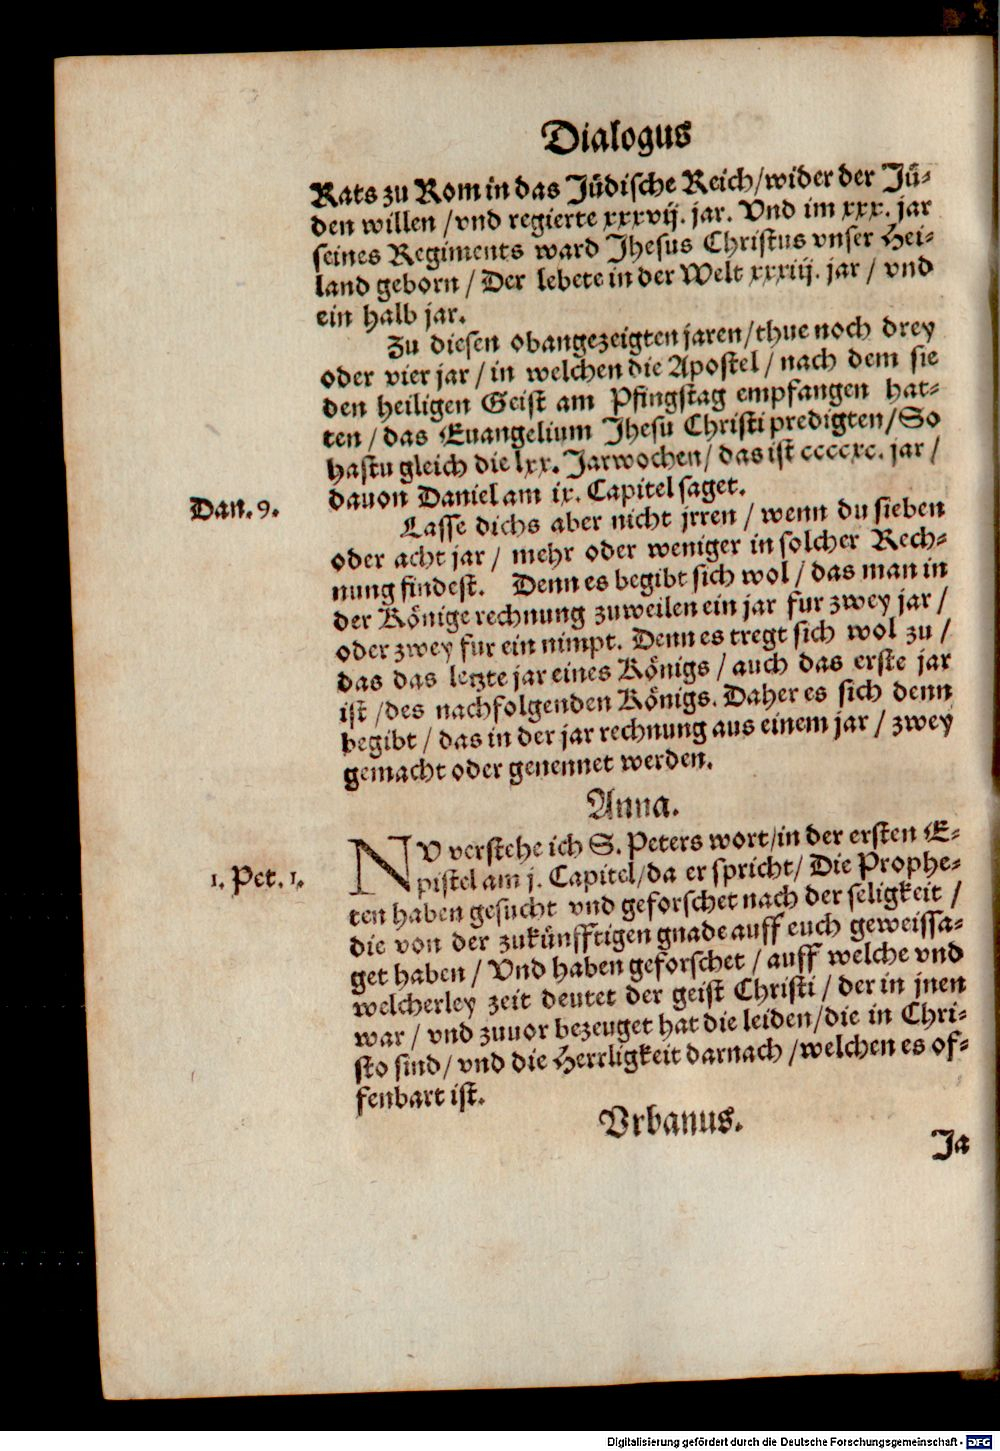 Dialogus
Rats zu Rom in das Jüdische Reich/wider der Jü-
den willen/vnd regierte xxxvij. jar. Vnd im xxx. jar
seines Regiments ward Jhesus Christus vnser Hei-
land geborn/Der lebete in der Welt xxxiij. jar/vnd
ein halb jar.
Zu diesen obangezeigten jaren/thue noch drey
oder vier jar/in welchen die Apostel/nach dem sie
den heiligen Geist am Pfingstag empfangen hat-
ten/das Euangelium Jhesu Christi predigten/So
hastu gleich die lxx. Jarwochen/das ist ccccxc. jar/
dauon Daniel am ix. Capitel saget.
Dan. 9.
Lasse dichs aber nicht jrren/wenn du sieben
oder acht jar/mehr oder weniger in solcher Rech-
nung findest. Denn es begibt sich wol/das man in
der Könige rechnung zuweilen ein jar fur zwey jar/
oder zwey fur ein nimpt. Denn es tregt sich wol zu/
das das letzte jar eines Königs/auch das erste jar
ist/des nachfolgenden Königs. Daher es sich denn
begibt/das in der jar rechnung aus einem jar/zwey
gemacht oder genennet werden.
Anna.
NV verstehe ich S. Peters wort/in der ersten E-
pistel am j. Capitel/da er spricht/Die Prophe-
1. Pet. 1.
ten haben gesucht vnd geforschet nach der seligkeit/
die von der zukünfftigen gnade auff euch geweissa-
get haben/Vnd haben geforschet/auff welche vnd
welcherley zeit deutet der geist Christi/der in jnen
war/vnd zuuor bezeuget hat die leiden/die in Chri-
sto sind/vnd die Herrligkeit darnach/welchen es of-
fenbart ist.
Vrbanus.
Ja
Digitalisierung gefördert durch die Deutsche Forschungsgemeinschaft - DFG